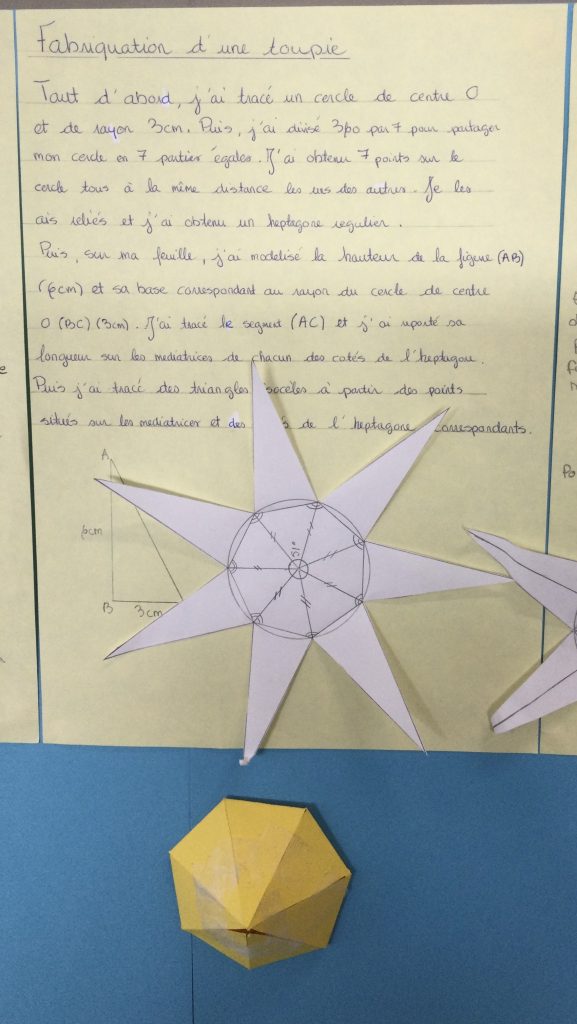 Fabriquation d'une toupie
Tout d'abord, j'ai tracé un cercle de centre O
et de rayon 3cm. Puis, j'ai divisé 360 par 7 pour partager
mon cercle en 7 parties égales. J'ai obtenu 7 points sur le
cercle tous à la même distance les uns des autres. Je les
ais reliés et j'ai obtenu un heptagone regulier.
Puis, sur ma feuille, j'ai modelisé la hauteur de la figure (AB)
(6cm) et sa base correspondant au rayon du cercle de centre
O (BC) (3cm). J'ai tracé le segment (AC) et j'ai reporté sa
longueur sur les mediatrices de chacun des cotés de l'heptagone.
Puis j'ai tracé des triangles isocèles à partir des points
situés sur les mediatrices et des de l'heptagone correspondants.
A
6cm
B 3cm
51°